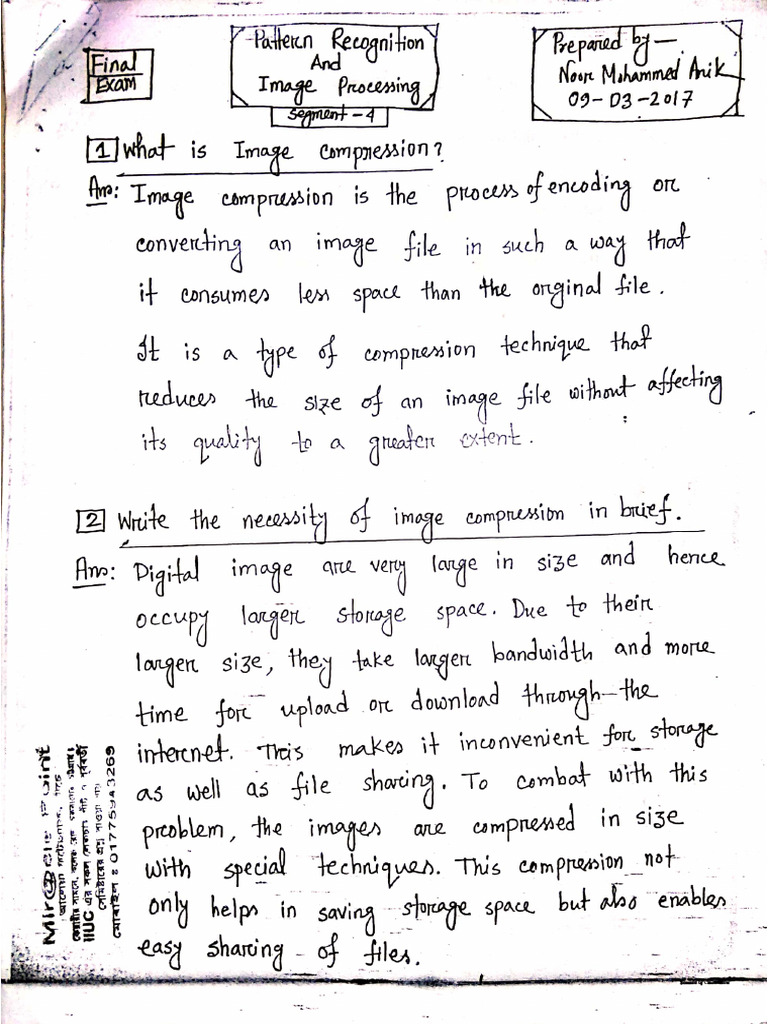 Final
Exam
Pattern Recognition
And
Image Processing
Segment - 4
Prepared by —
Noor Mohammed Anik
09-03-2017
1 What is Image compression?
Ans: Image compression is the process of encoding or
converting an image file in such a way that
it consumes less space than the original file.
It is a type of compression technique that
reduces the size of an image file without affecting
its quality to a greater extent.
2 Write the necessity of image compression in brief.
Ans: Digital image are very large in size and hence
occupy larger storage space. Due to their
larger size, they take larger bandwidth and more
time for upload or download through the
internet. This makes it inconvenient for storage
as well as file sharing. To combat with this
problem, the images are compressed in size
with special techniques. This compression not
only helps in saving storage space but also enables
easy sharing of files.
IIUC
০১৭৭৫৯৪৩২৬৯